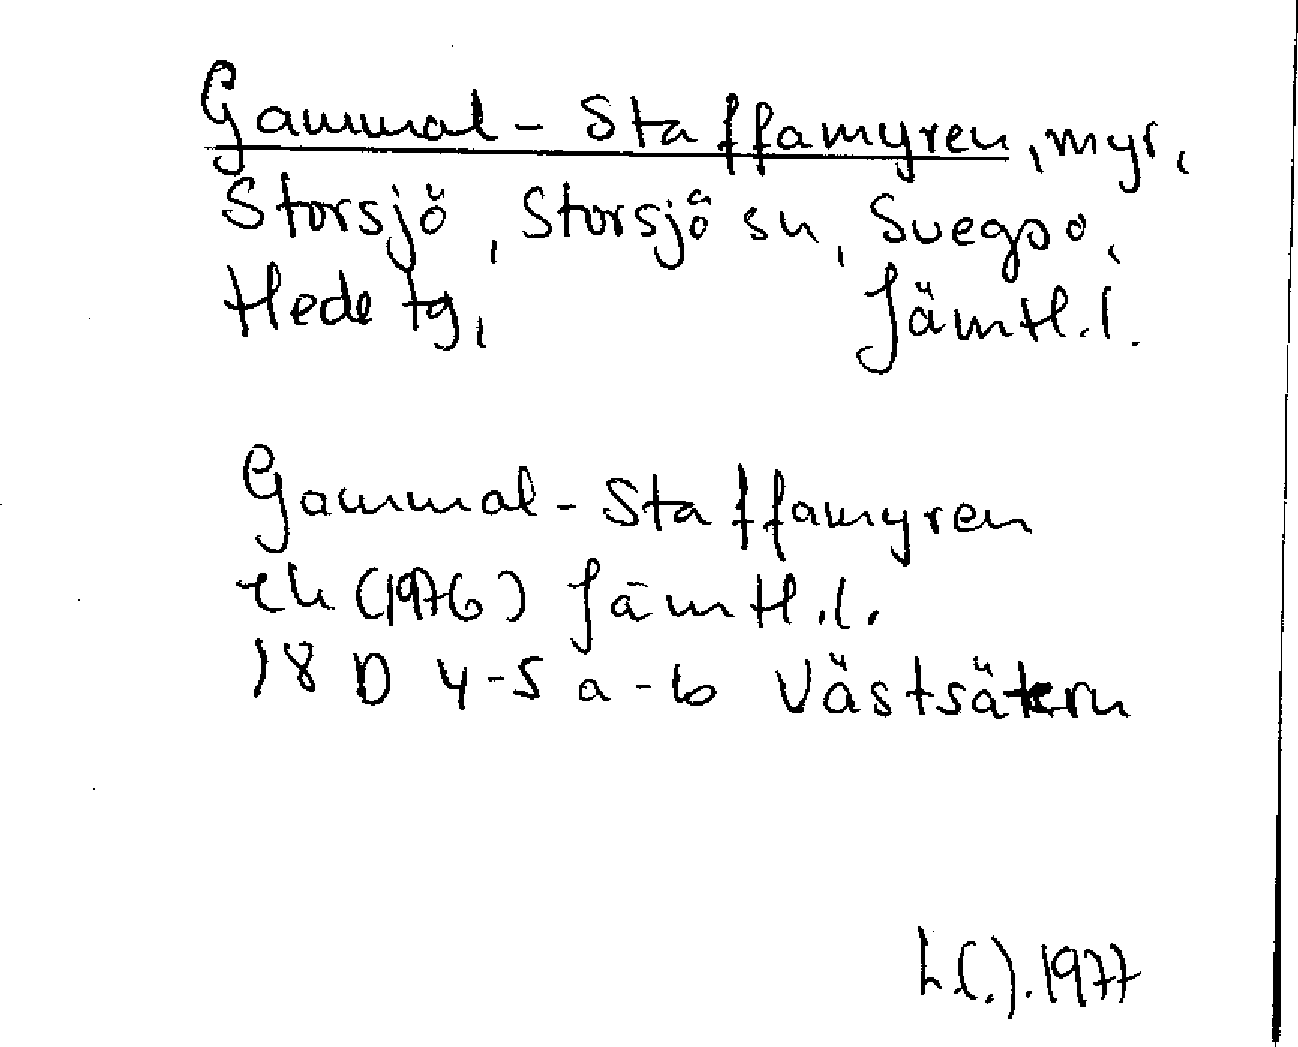 Gammal-Staffamyren, myr,
Storsjö, Storsjö sn, Svegs o,
Hede tg, Jämtl. l.
Gammal-Staffamyren
ek (1976) Jämtl. l.
18 D 4-5 a-b Västsätern
L.(.).1977